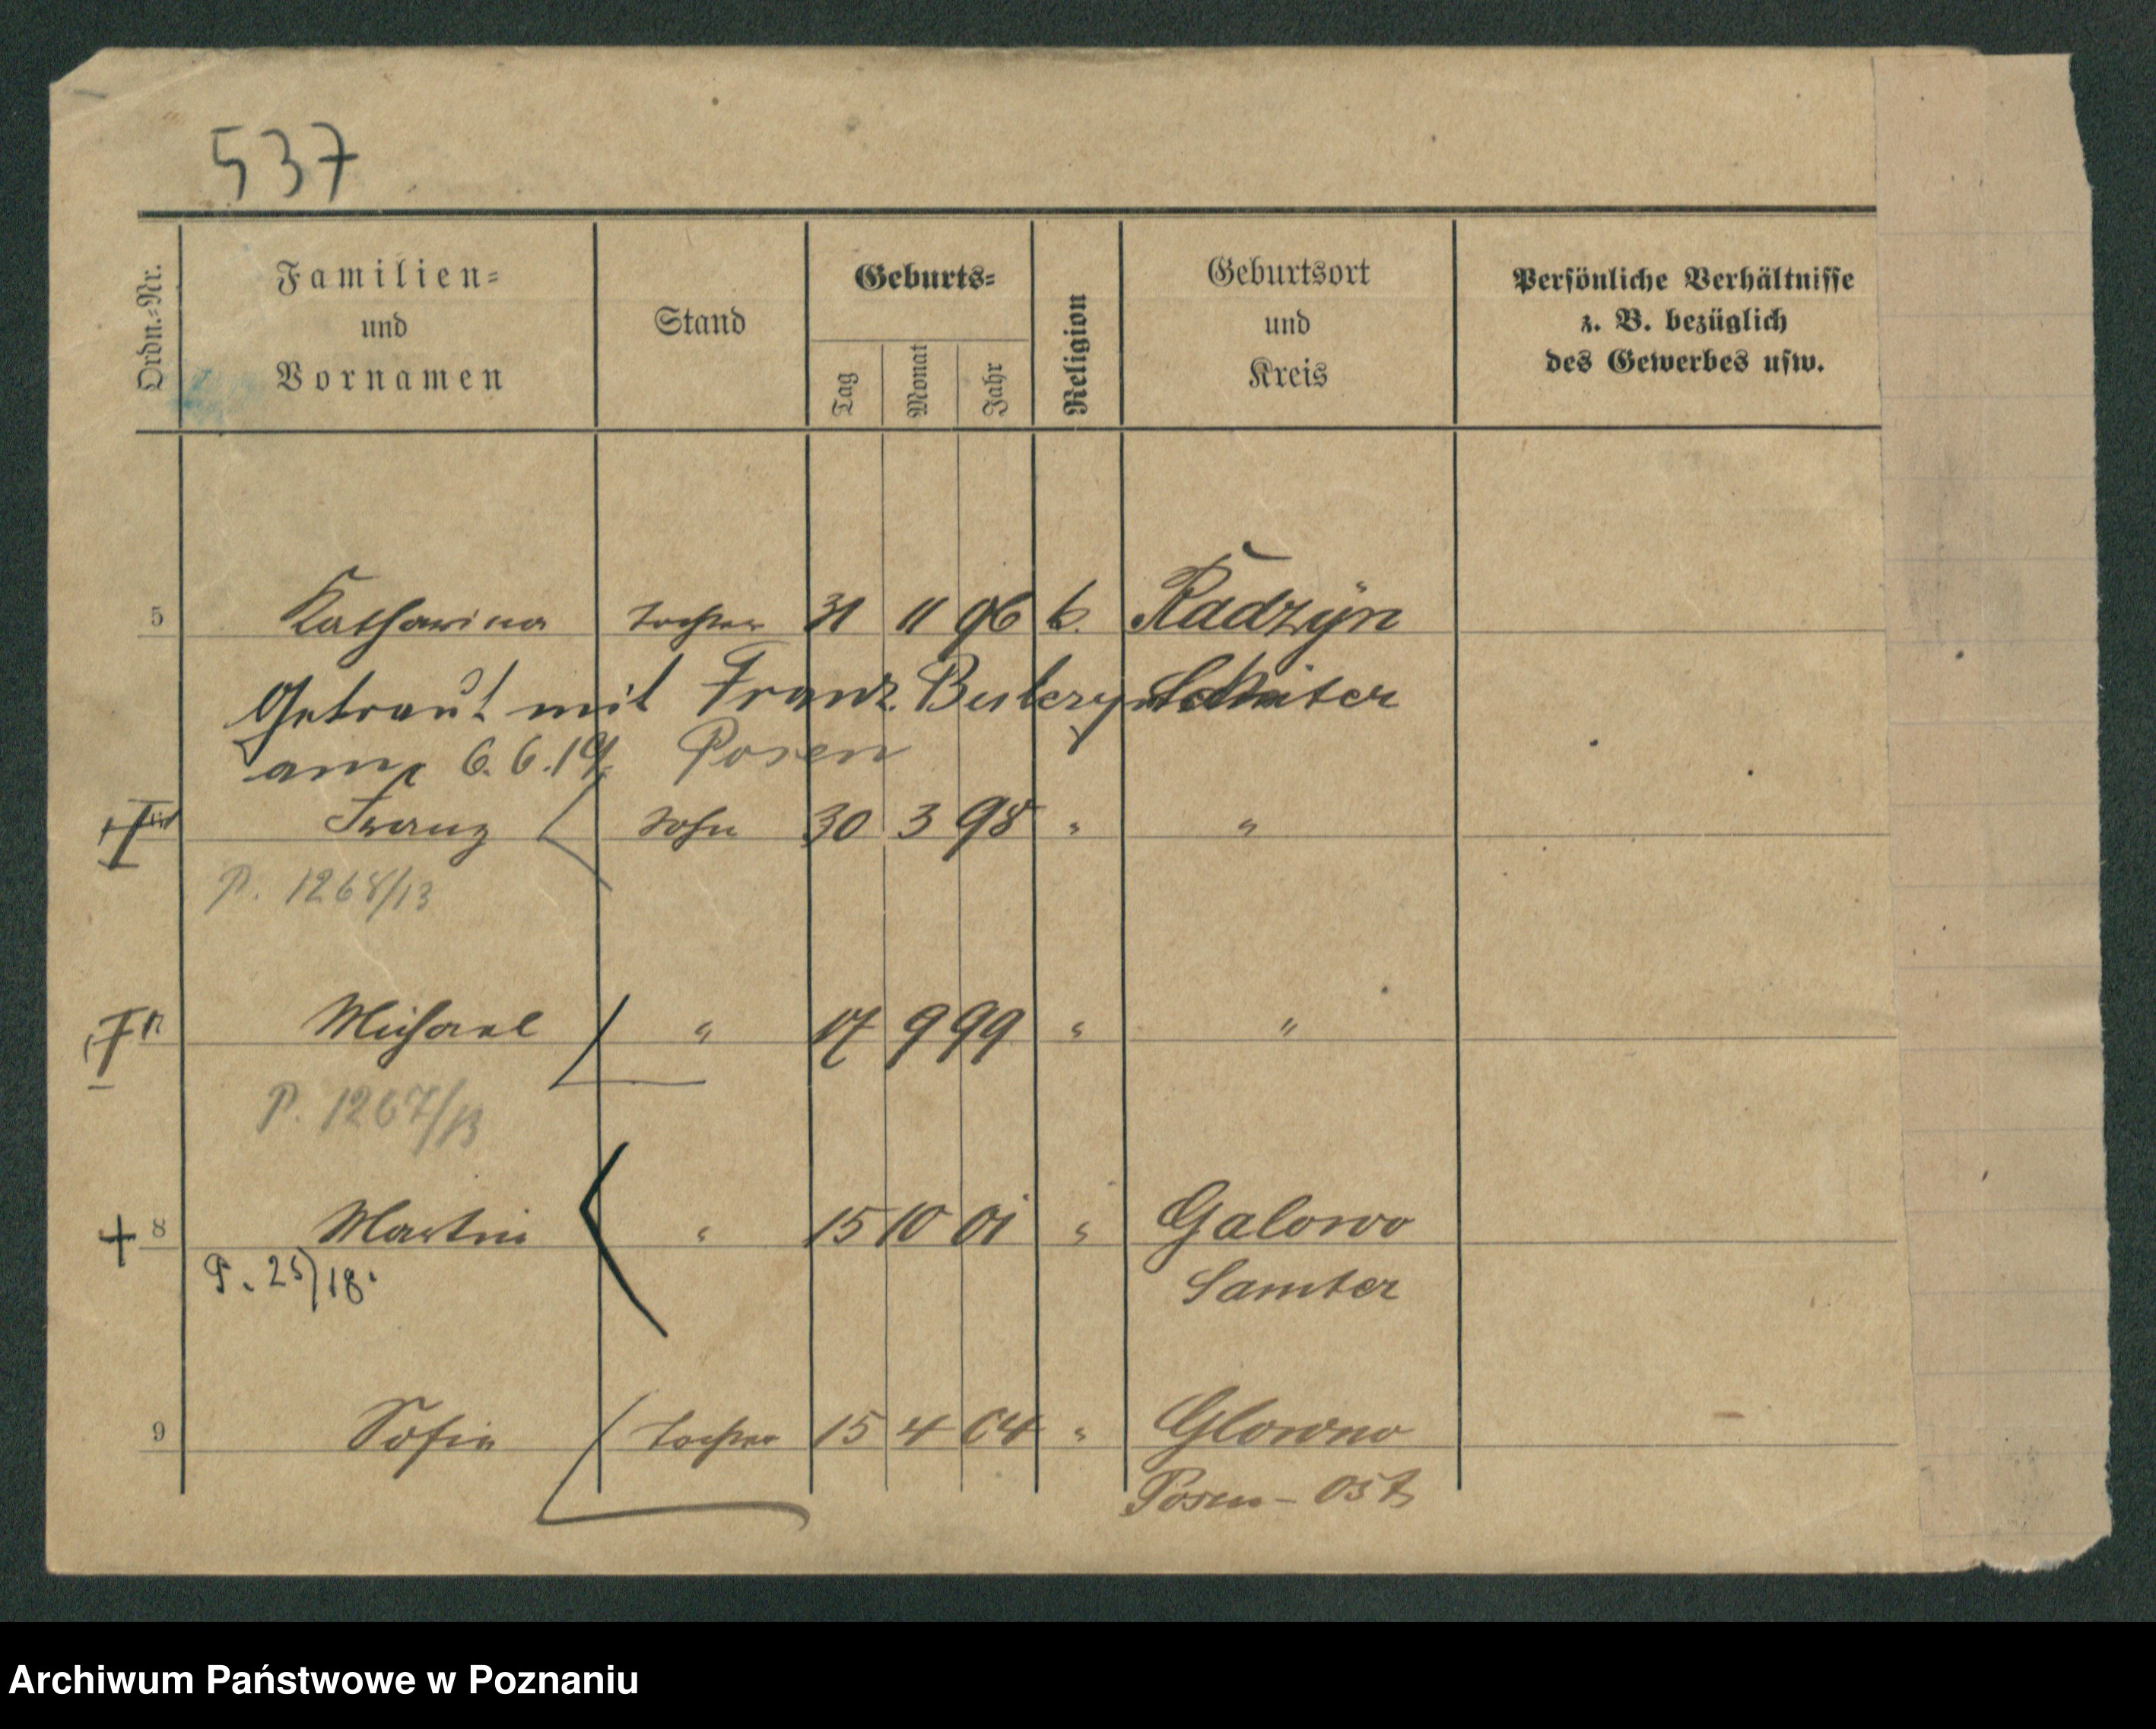 537
Ordn.=Nr.
Familien=
und
Vornamen
Stand
Geburts=
Tag
Monat
Jahr
Religion
Geburtsort
und
Kreis
Persönliche Verhältnisse
z. B. bezüglich
des Gewerbes usw.
5 Katharina Tochter 31 11 96 k. Radzÿn
Getraut mit Franz
am 6.6.19 Posen
Franz Sohn 30 3 98 " "
P. 1268/13
Michael " 17 9 99 " "
P. 1267/13
+ 8 Martin " 15 10 01 " Galowo
P. 25/18. Samter
9 Sofie Tochter 15 4 04 " Glowno
Posen-Ost
Archiwum Państwowe w Poznaniu